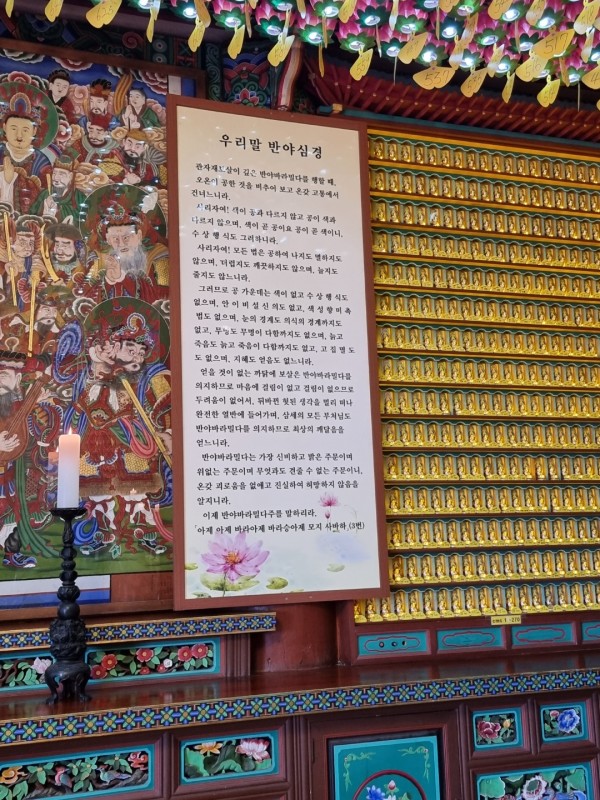 우리말 반야심경
관자재보살이 깊은 반야바라밀다를 행할 때,
오온이 공한 것을 비추어 보고 온갖 고통에서
건너느니라.
사리자여! 색이 공과 다르지 않고 공이 색과
다르지 않으며, 색이 곧 공이요 공이 곧 색이니,
수 상 행 식도 그러하니라.
사리자여! 모든 법은 공하여 나지도 멸하지도
않으며, 더럽지도 깨끗하지도 않으며, 늘지도
줄지도 않느니라.
그러므로 공 가운데는 색이 없고 수 상 행 식도
없으며, 안 이 비 설 신 의도 없고, 색 성 향 미 촉
법도 없으며, 눈의 경계도 의식의 경계까지도
없고, 무명도 무명이 다함까지도 없으며, 늙고
죽음도 늙고 죽음이 다함까지도 없고, 고 집 멸 도
도 없으며, 지혜도 얻음도 없느니라.
얻을 것이 없는 까닭에 보살은 반야바라밀다를
의지하므로 마음에 걸림이 없고 걸림이 없으므로
두려움이 없어서, 뒤바뀐 헛된 생각을 멀리 떠나
완전한 열반에 들어가며, 삼세의 모든 부처님도
반야바라밀다를 의지하므로 최상의 깨달음을
얻느니라.
반야바라밀다는 가장 신비하고 밝은 주문이며
위없는 주문이며 무엇과도 견줄 수 없는 주문이니,
온갖 괴로움을 없애고 진실하여 허망하지 않음을
알지니라.
이제 반야바라밀다주를 말하리라.
아제 아제 바라아제 바라승아제 모지 사바하 (3번)